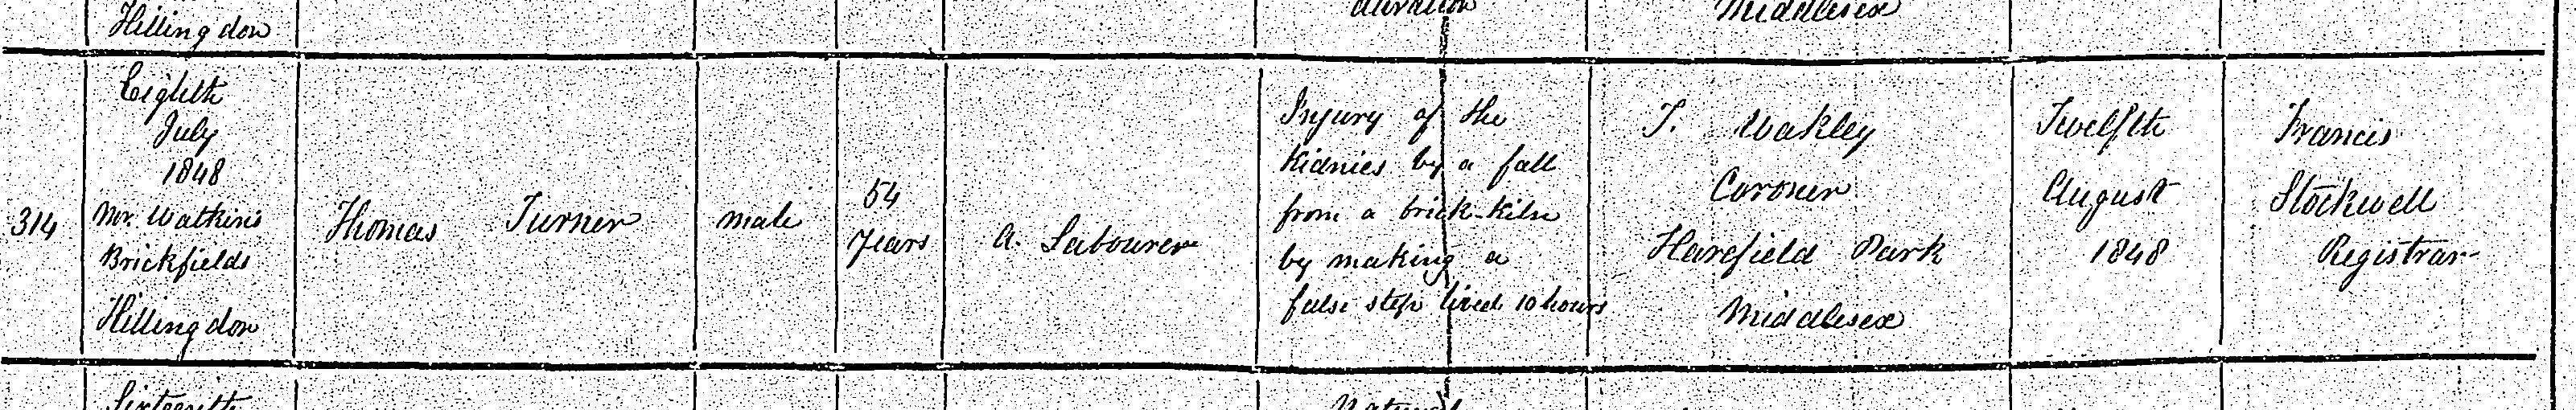 Hillingdon
duration
Middlesex
314
Eighth
July
1848
Mr. Watkins
Brickfields
Hillingdon
Thomas Turner
male
54
years
A. Labourer
Injury of the
Kidnies by a fall
from a brick-kiln
by making a
false step lived 10 hours
T. Wakley
Coroner
Harefield Park
Middlesex
Twelfth
August
1848
Francis
Stockwell
Registrar
Sixteenth
Natural